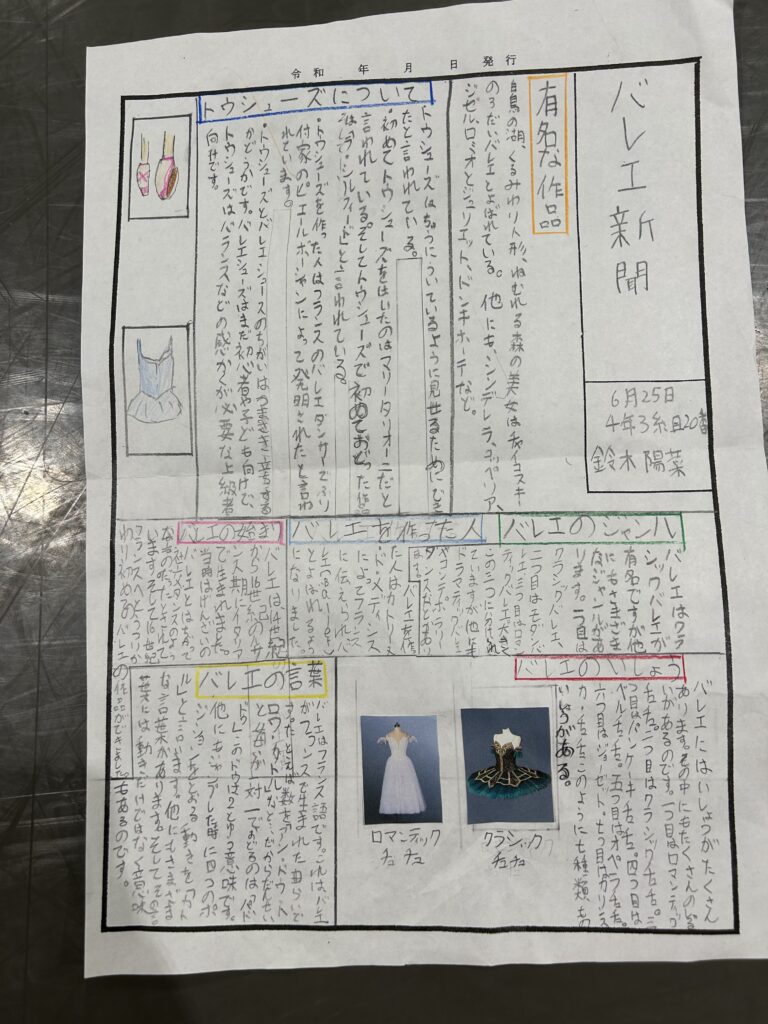 令和 年 月 日 発行
バレエ新聞
6月25日
4年3組20番
鈴木 陽菜
有名な作品
白鳥の湖、くるみわり人形、ねむれる森の美女はチャイコスキー
の3だいバレエとよばれている。他にも、シンデレラ、コッペリア、
ジゼル、ロミオとジュリエット、ドンキホーテなど。
トウシューズについて
トウシューズはちゅうにういているように見せるために
たと言われている。
・初めてトウシューズをはいたのはマリータリオーニだと
言われている。そしてトウシューズで初めておどった作品
は「ラ・シルフィード」と言われている。
・トウシューズを作った人はフランスのバレエダンサーでふり
付家のピエールボーシャンによって発明されたと言わ
れています。
・トウシューズとバレエシューズのちがいはつまさき立ちする
かどうかです。バレエシューズはまだ初心者や子ども向けで、
トウシューズはバランスなどの感かくが必要な上級者
向けです。
バレエのジャンル
バレエはクラ
シックバレエが
有名ですが他
にもさまざま
なジャンルがあ
ります。一つ目は
クラシックバレエ、
二つ目はモダンバ
レエ、三つ目はロマン
ティックバレエ大きく
この三つに分けられ
ていますが他にも
ドラマティックバレエ
やコンテンポラリー
ダンスなどもあり
ます。
バレエを作った人
バレエを作っ
た人はカトリーヌ
・ド・メディシス
によってフランス
に伝えられ、バ
とよばれるよう
になりました。
バレエの始まり
バレエは14世紀
から16世紀のルネ
ンス期にイタリア
で生まれました。
当時は
バレエとはちがって
社交ダンスのよう
なものだったとされて
います。そして16世紀
フランスへとうつりか
わり初めてのバレエの作品ができました。
バレエのいしょう
バレエにはいしょうがたくさん
あります。その中にもたくさんのちが
いがあるのです。一つ目はロマンティック
チュチュ。二つ目はクラシックチュチュ。三
つ目はパンケーキチュチュ。四つ目は
ベルチュチュ。五つ目はオペラチュチュ。
六つ目はジョーゼット。七つ目は
カ・チュチュ。このように七種類もの
いしょうがある。
クラシック
チュチュ
ロマンティック
チュチュ
バレエの言葉
バレエはフランス語です。これは、バレエ
がフランスで生まれた曲らいで
す。たとえば数を「アン・ドゥ・ト
ロワ・カトル」など…だからだんせい
と女せいが一対一でおどるのは「パ・ド
ドゥ」の「ドゥ」は2とゆう意味です。
他にもジャンプした時に四つのポ
ジションをとおる動きを「カト
ル」と言います。他にもさまざま
な言葉があります。そしてその言
葉には、動きだけではなく意味
もあるのです。